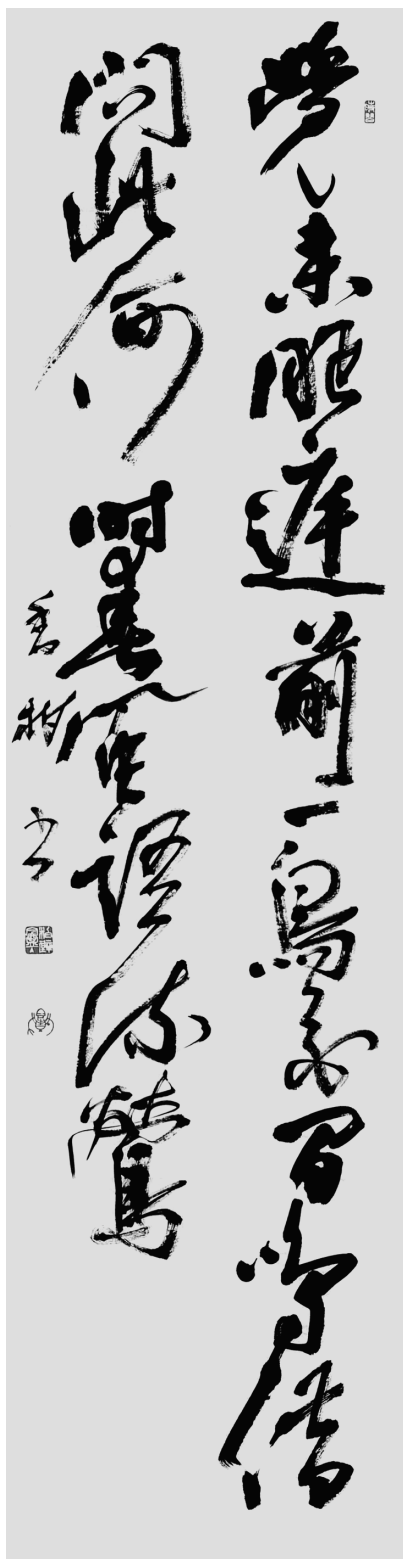 覺來眄庭前一鳥花間鳴借
問此何時春風語流鶯
书